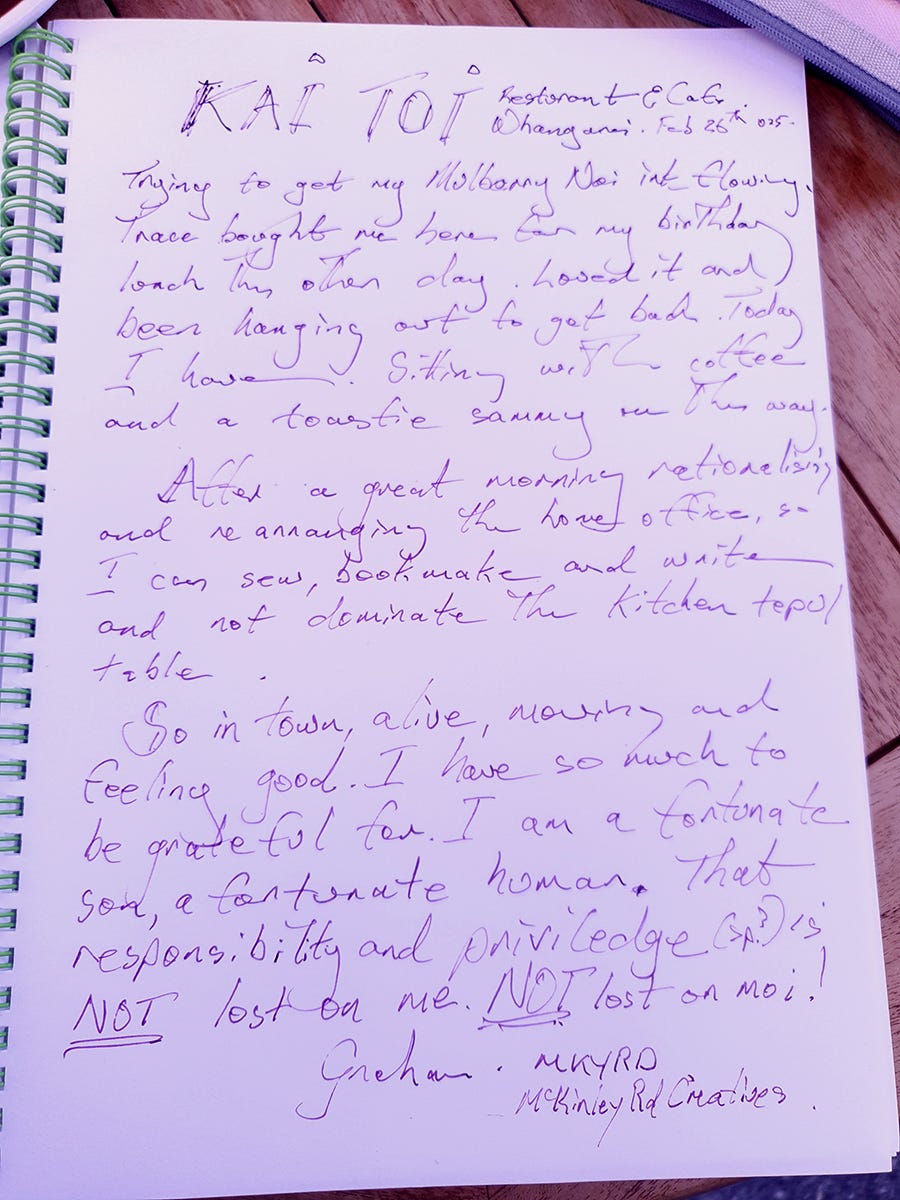 KAI TOI
Restorant & Cafe.
Whangarei. Feb 26th 025.
Trying to get my Mulberry Noi ink flowing.
Trace bought me here for my birthday
lunch the other day. Loved it and
been hanging out to get back. Today
I have. Sitting with coffee
and a toastie sammy on the way.
After a great morning rationalising
and rearranging the home office, so
I can sew, bookmake and write
and not dominate the kitchen
table.
So in town, alive, moving and
feeling good. I have so much to
be grateful for. I am a fortunate
son, a fortunate human. That
responsibility and priviledge (sp?) is
NOT lost on me. NOT lost on moi!
Graham. MKYRD
McKinley Rd Creatives.